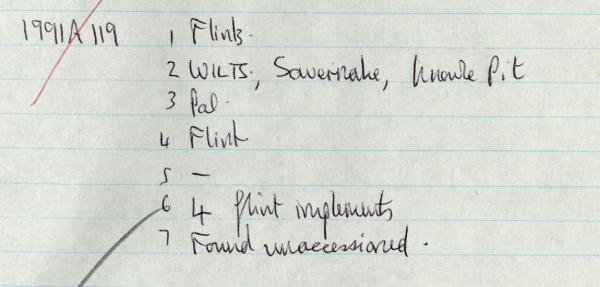 1991A119 1 Flints.
2 WILTS., Savernake, Knowle Pit
3 Pal.
4 Flint
5 —
6 4 flint implements
7 Found unaccessioned.